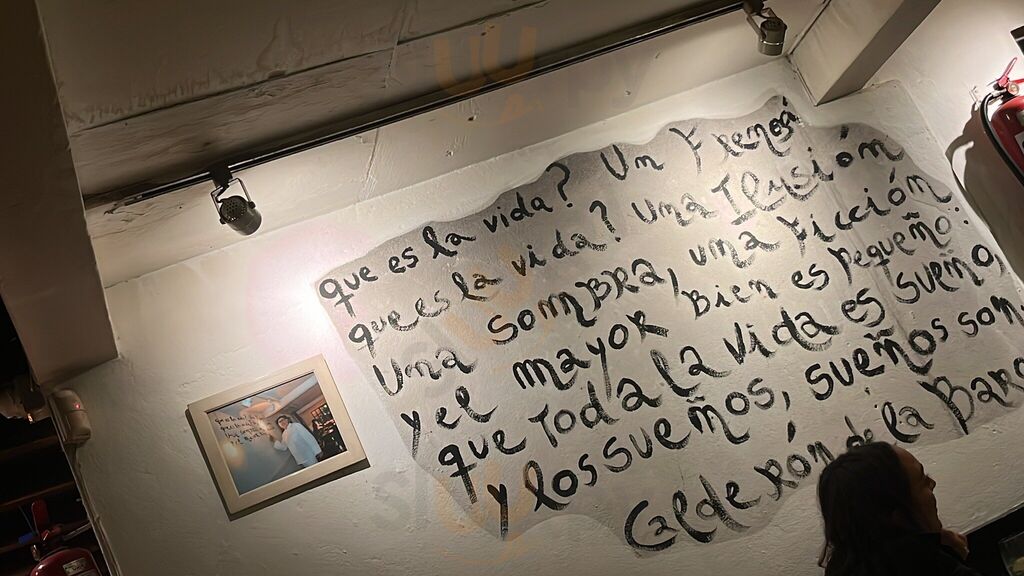 que es la vida? Un Frenesí
que es la vida? una Ilusión
Una sombra, una Ficción
y el mayor Bien es pequeño.
que Toda la Vida es sueño,
y los sueños, sueños son
Calderón de la Barc